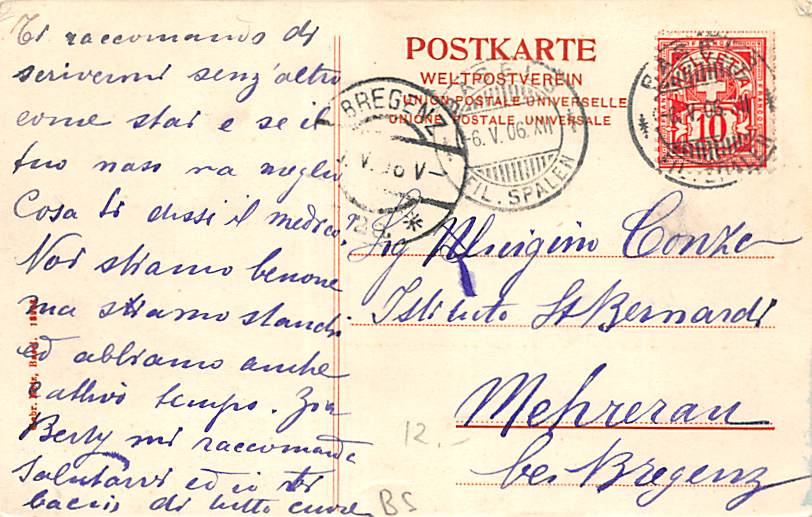 Ti raccomando di
scrivermi senz'altro
come stai e se il
tuo naso va meglio
Cosa ti dissi il medico,
Noi stiamo benone
ma stiamo stanchi
ed abbiamo anche
cattivo tempo. Zia
Berty mi raccomanda
Salutarvi ed io ti
bacio di tutto cuore
POSTKARTE
WELTPOSTVEREIN
UNION POSTALE UNIVERSELLE
UNIONE POSTALE UNIVERSALE
BREGENZ
-6.V.06.XII
FIL. SPALEN
BASEL
HELVETIA
10
Sig Luigino Conza
Istituto St Bernardi
Mehrerau
bei Bregenz
12.-
BS